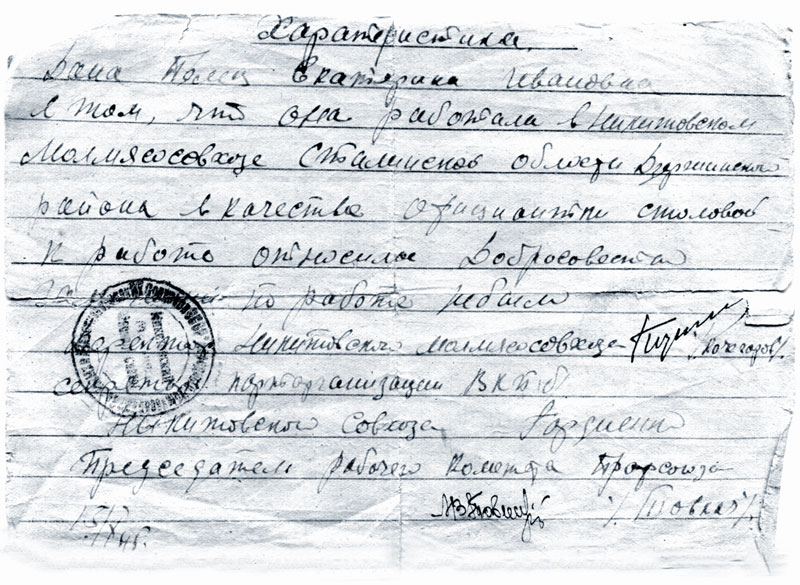 Характеристика
Дана Екатерина Ивановна
в том, что она работала в Никитовском
Молмясосовхозе Сталинской области Дзержинского
района в качестве официантки столовой
к работе относилась Добросовестно
по работе небыло
Директор Никитовского молмясосовхоза /Кочегаров/
секретарь парторганизации ВКПб
Никитовского совхоза Гордиенко
Председатель рабочего комитета Профсоюза
45г.